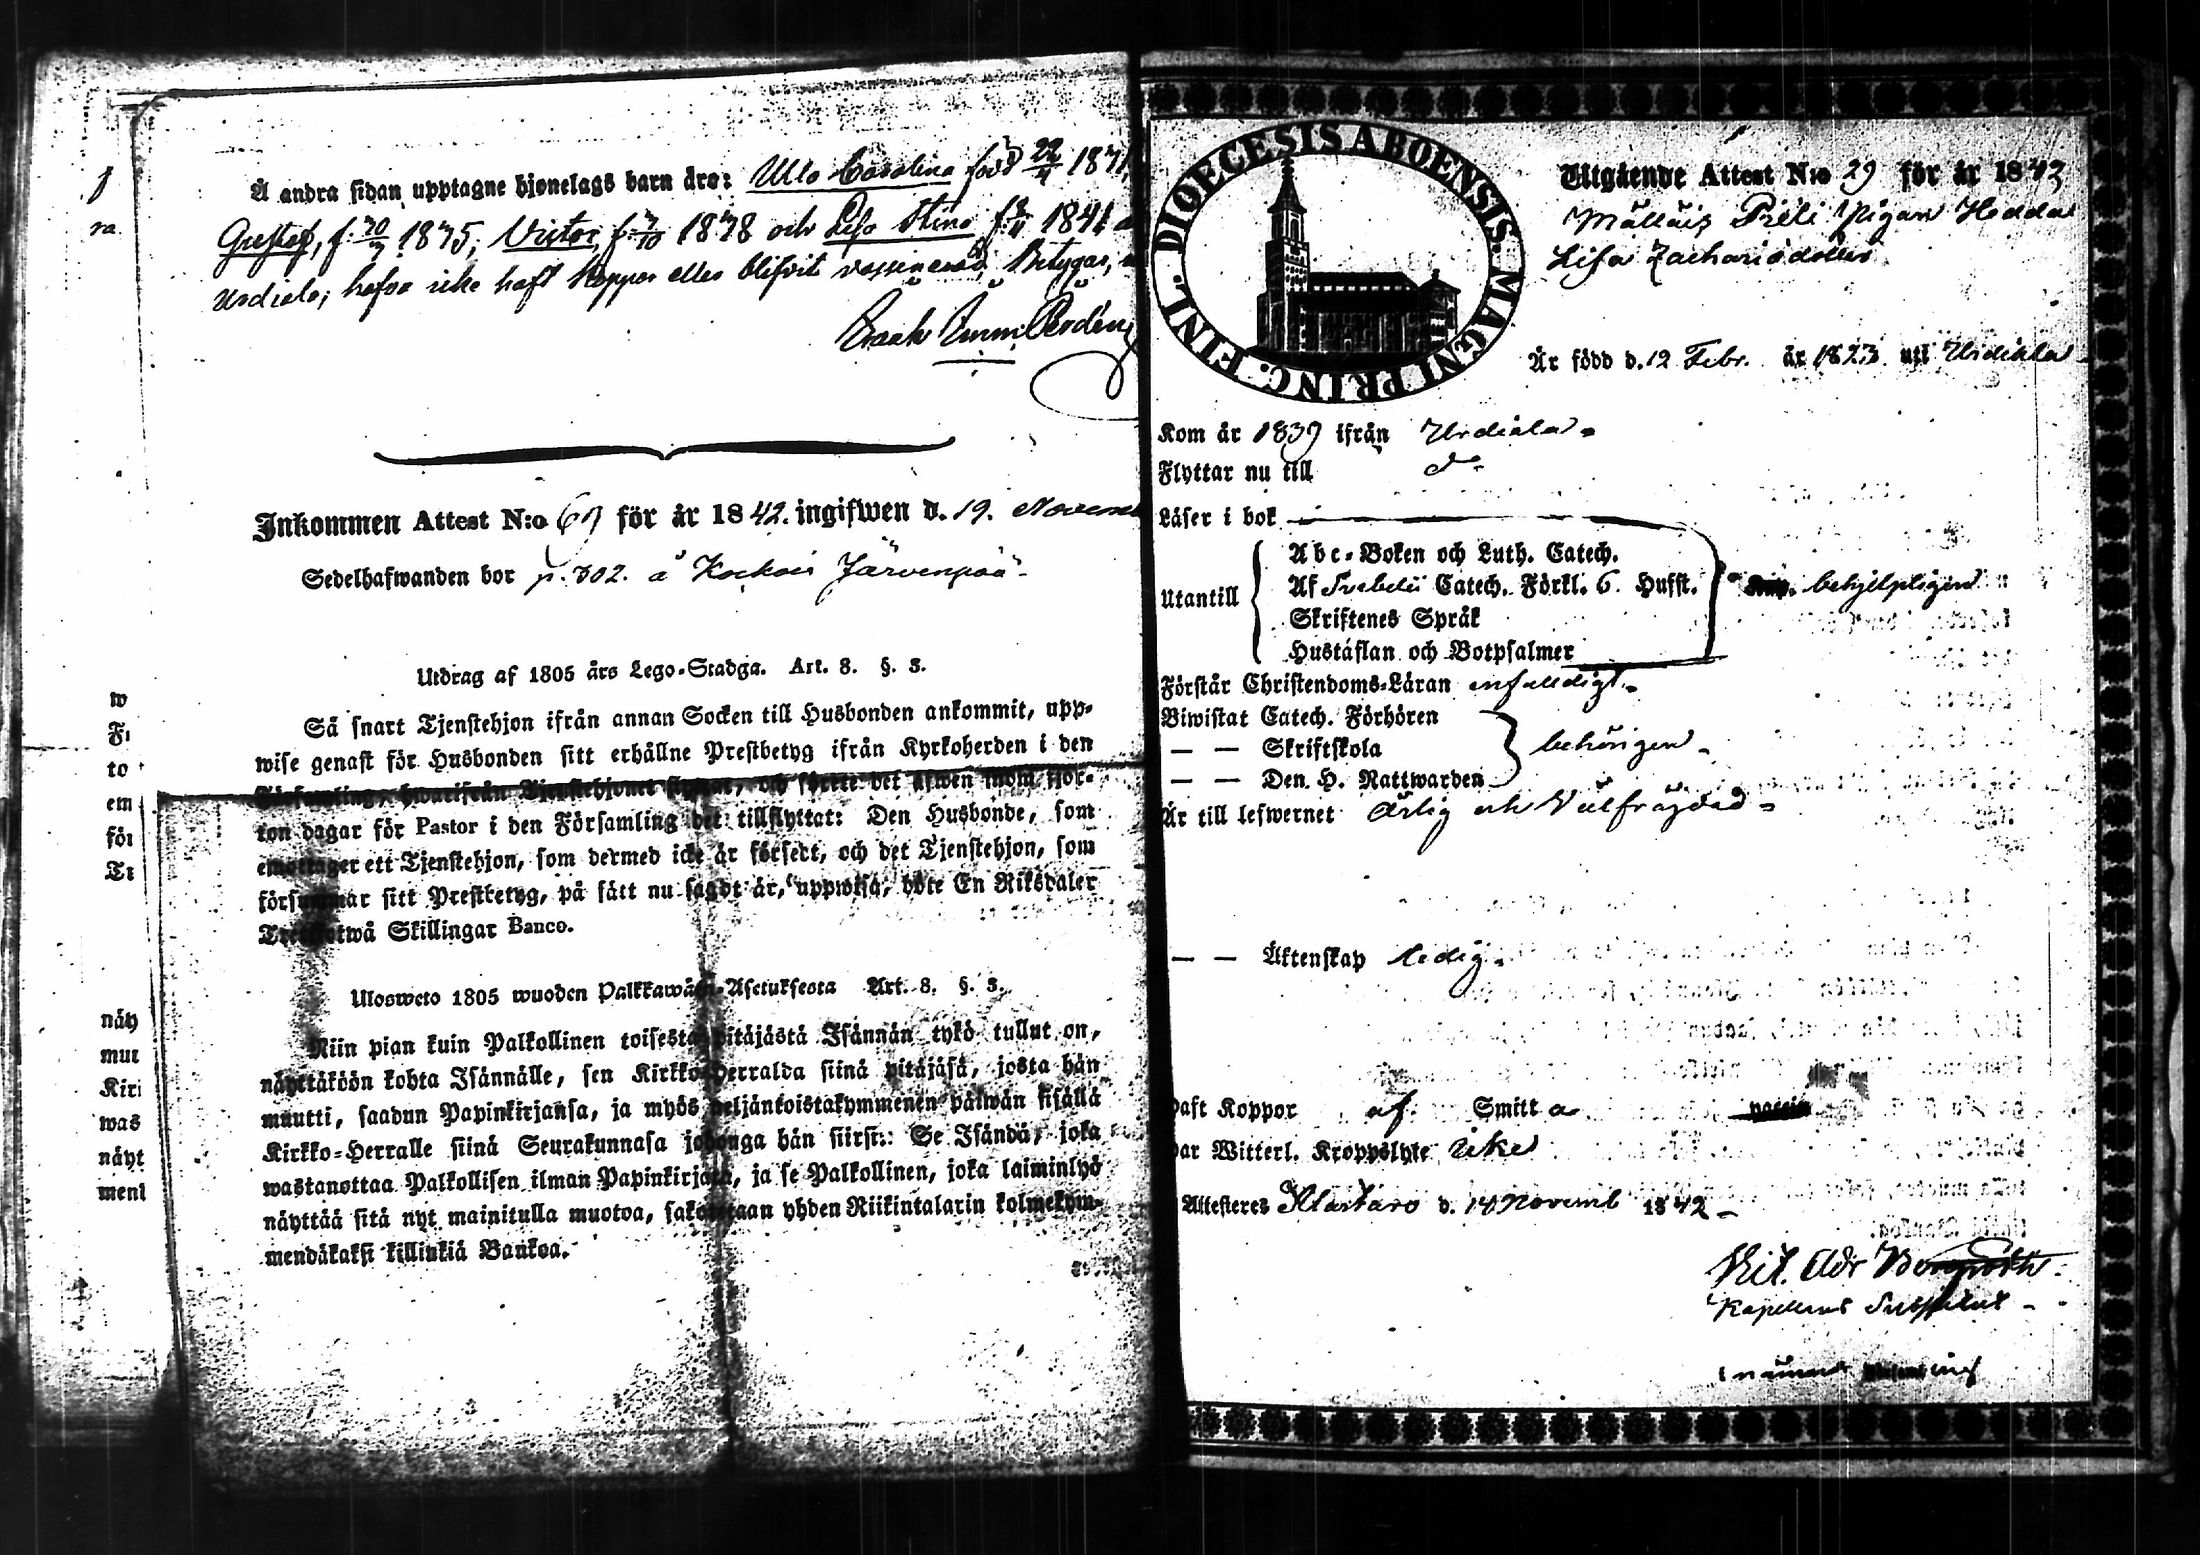 Å andra sidan upptagne hjonelags barn äro: Ulla Carolina född 22/4 18
Gustaf, f. 1835, Victor, f. 1838 och Lisa Stina f. 1841
Urdiala; hafva icke haft koppor eller blifvit vaccinerade, Betygar,
Inkommen Attest N:o 69 för år 1842. ingifwen d. 19. Novem
Sedelhafwanden bor p. 302. å Järvenpää
Utdrag af 1805 års Lego-Stadga. Art. 8. §. 3.
Så snart Tjenstehjon ifrån annan Socken till Husbonden ankommit, upp-
wise genast för Husbonden sitt erhållne Prestbetyg ifrån Kyrkoherden i den
Församling, hwarifrån Tjenstehjonet flyttat, och förete det äfwen inom fjor-
ton dagar för Pastor i den Församling det tillflyttat: Den Husbonde, som
emottager ett Tjenstehjon, som dermed icke är försedt, och det Tjenstehjon, som
försummar sitt Prestbetyg, på sätt nu sagdt är, uppwisa, böte En Riksdaler
Trettiotwå Skillingar Banco.
Ulosweto 1805 wuoden Palkkawäen-Asetuksesta Art. 8. §. 3.
Niin pian kuin Palkollinen toisesta pitäjästä Isännän tykö tullut on,
näyttäköön kohta Isännälle, sen Kirkko-Herralda siinä pitäjäsä, josta hän
muutti, saadun Papinkirjansa, ja myös neljäntoistakymmenen päiwän sisällä
Kirkko-Herralle siinä Seurakunnasa johonga hän siirsi: Se Isändä, joka
wastanottaa Palkollisen ilman Papinkirjata, ja se Palkollinen, joka laiminlyö
näyttää sitä nyt mainitulla muotoa, sakoitetaan yhden Riikintalarin kolmekym-
mendäkaksi killinkiä Bankoa.
w
to
em
för
näy
mut
Kir
was
näyt
men
DIOECESIS ABOENSIS. MAGNI PRINC. FINL.
Utgående Attest N:o 29 för år 1843
Pigan Hedda
Lisa Zachariedotter
Är född d. 12 Febr. år 1823 uti Urdiala
Kom år 1839 ifrån Urdiala
Flyttar nu till d:o
Läser i bok
Utantill
Abc-Boken och Luth. Catech.
Af Svebelii Catech. Förkl. 6 Hufst. behjelpligen
Skriftenes Språk
Hustaflan och Botpsalmer
Förstår Christendoms-Läran enfaldigt
Biwistat Catech. Förhören
— — Skriftskola behörigen
— — Den H. Nattwarden
Är till lefwernet ärlig och välfrägdad
— — Äktenskap ledig
Haft Koppor af Smitta
Har Witterl. Kroppslyte icke
Attesteres d. 14 Novemb 1842